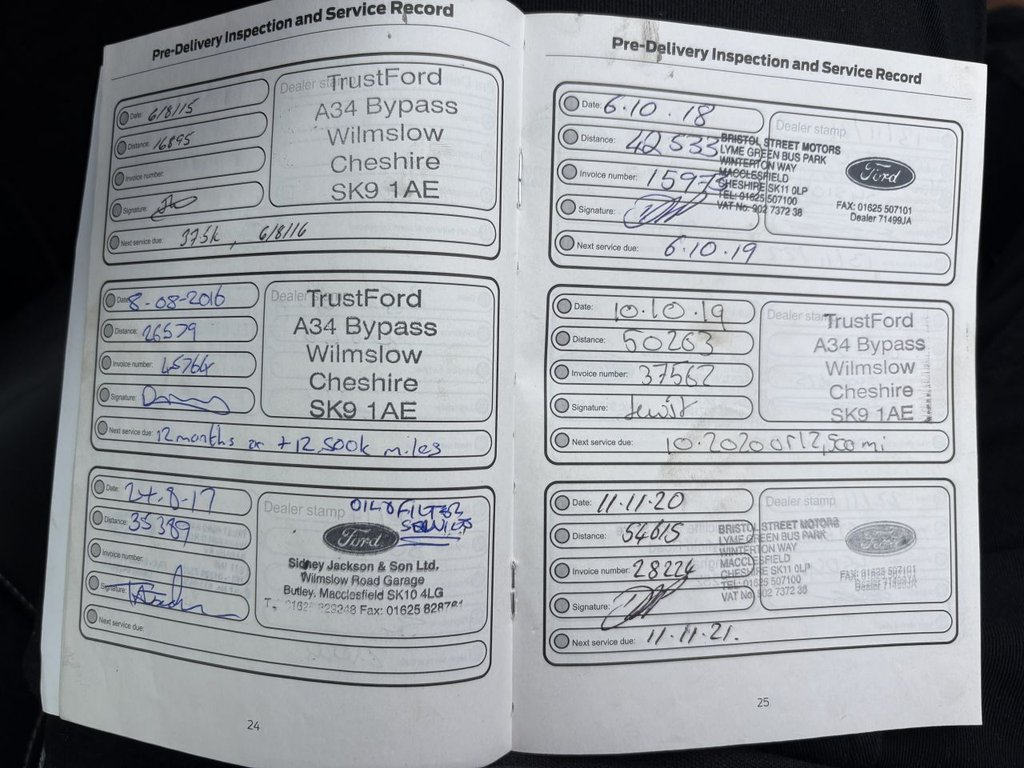 Pre-Delivery Inspection and Service Record
Date: 6/8/15
Distance: 16895
Invoice number:
Signature:
Next service due: 375k, 6/8/16
Dealer stamp
TrustFord
A34 Bypass
Wilmslow
Cheshire
SK9 1AE
Date: 8-08-2016
Distance: 26579
Invoice number: 45764
Signature:
Next service due: 12 months or +12,500k miles
Dealer
TrustFord
A34 Bypass
Wilmslow
Cheshire
SK9 1AE
Date: 24-8-17
Distance: 35389
Invoice number:
Signature:
Next service due:
Dealer stamp
OIL & FILTER
SERVICE
Ford
Sidney Jackson & Son Ltd.
Wilmslow Road Garage
Butley, Macclesfield SK10 4LG
Fax: 01625 828781
24
Pre-Delivery Inspection and Service Record
Date: 6.10.18
Distance: 42533
Invoice number: 1597
Signature:
Next service due: 6.10.19
Dealer stamp
BRISTOL STREET MOTORS
LYME GREEN BUS PARK
WINTERTON WAY
MACCLESFIELD
CHESHIRE SK11 0LP
TEL: 01625 507100
VAT No. 902 7372 38
Ford
FAX: 01625 507101
Dealer 71499JA
Date: 10.10.19
Distance: 50263
Invoice number: 37562
Signature:
Next service due: 10.2020 or 12,500mi
Dealer stamp
TrustFord
A34 Bypass
Wilmslow
Cheshire
SK9 1AE
Date: 11.11.20
Distance: 54615
Invoice number: 28224
Signature:
Next service due: 11.11.21.
Dealer stamp
BRISTOL STREET MOTORS
LYME GREEN BUS PARK
WINTERTON WAY
MACCLESFIELD
CHESHIRE SK11 0LP
TEL: 01625 507100
VAT No. 902 7372 38
Ford
FAX: 01625 507101
Dealer 71499JA
25